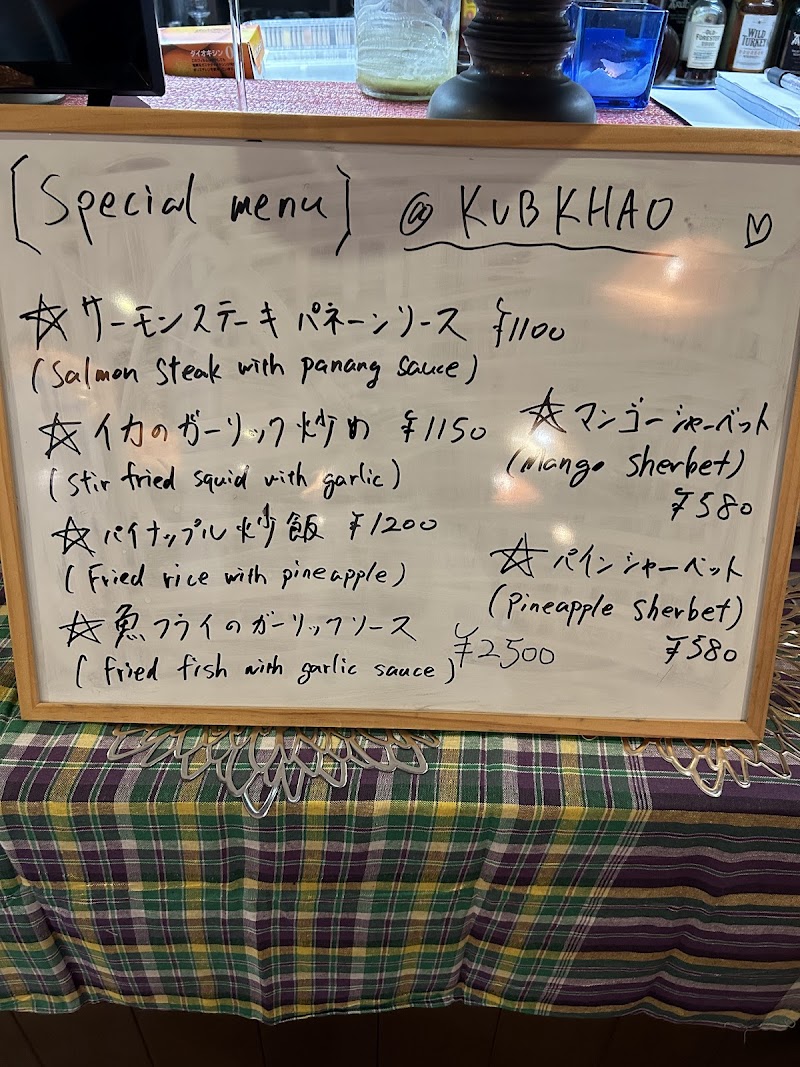 ダイオキシン0
OLD FORESTER
WILD TURKEY
[Special menu] @ KUB KHAO ♡
☆ サーモンステーキ パネーンソース ¥1100
(Salmon Steak with panang sauce)
☆ イカのガーリック炒め ¥1150
(Stir fried squid with garlic)
☆ パイナップル炒飯 ¥1200
(Fried rice with pineapple)
☆ 魚フライのガーリックソース
(Fried fish with garlic sauce) ¥2500
☆ マンゴーシャーベット
(Mango Sherbet)
¥580
☆ パインシャーベット
(Pineapple Sherbet)
¥580